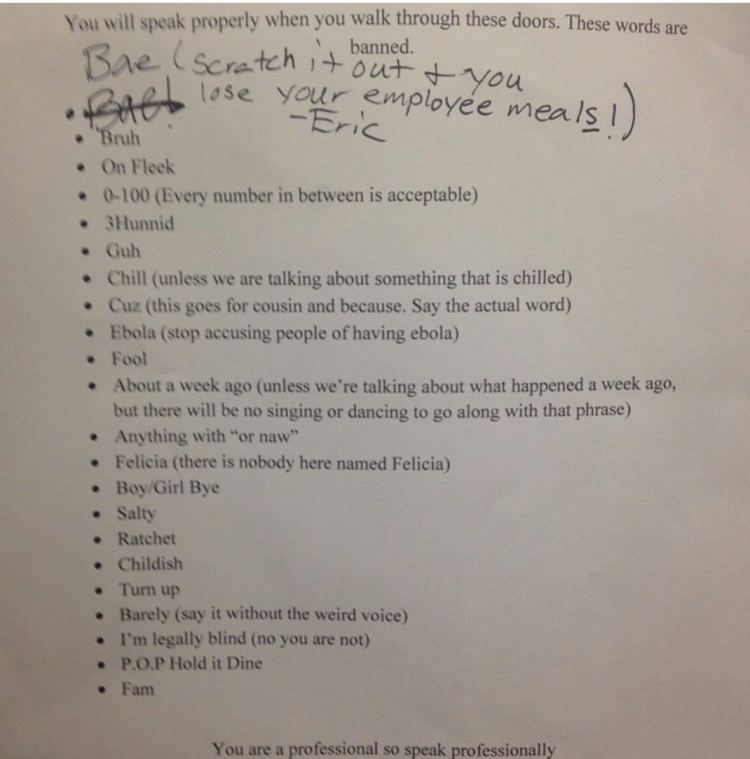 You will speak properly when you walk through these doors. These words are
banned.
Bae (scratch it out + you
lose your employee meals!)
-Eric
• Bae
• Bruh
• On Fleek
• 0-100 (Every number in between is acceptable)
• 3Hunnid
• Guh
• Chill (unless we are talking about something that is chilled)
• Cuz (this goes for cousin and because. Say the actual word)
• Ebola (stop accusing people of having ebola)
• Fool
• About a week ago (unless we're talking about what happened a week ago,
but there will be no singing or dancing to go along with that phrase)
• Anything with “or naw”
• Felicia (there is nobody here named Felicia)
• Boy/Girl Bye
• Salty
• Ratchet
• Childish
• Turn up
• Barely (say it without the weird voice)
• I'm legally blind (no you are not)
• P.O.P Hold it Dine
• Fam
You are a professional so speak professionally